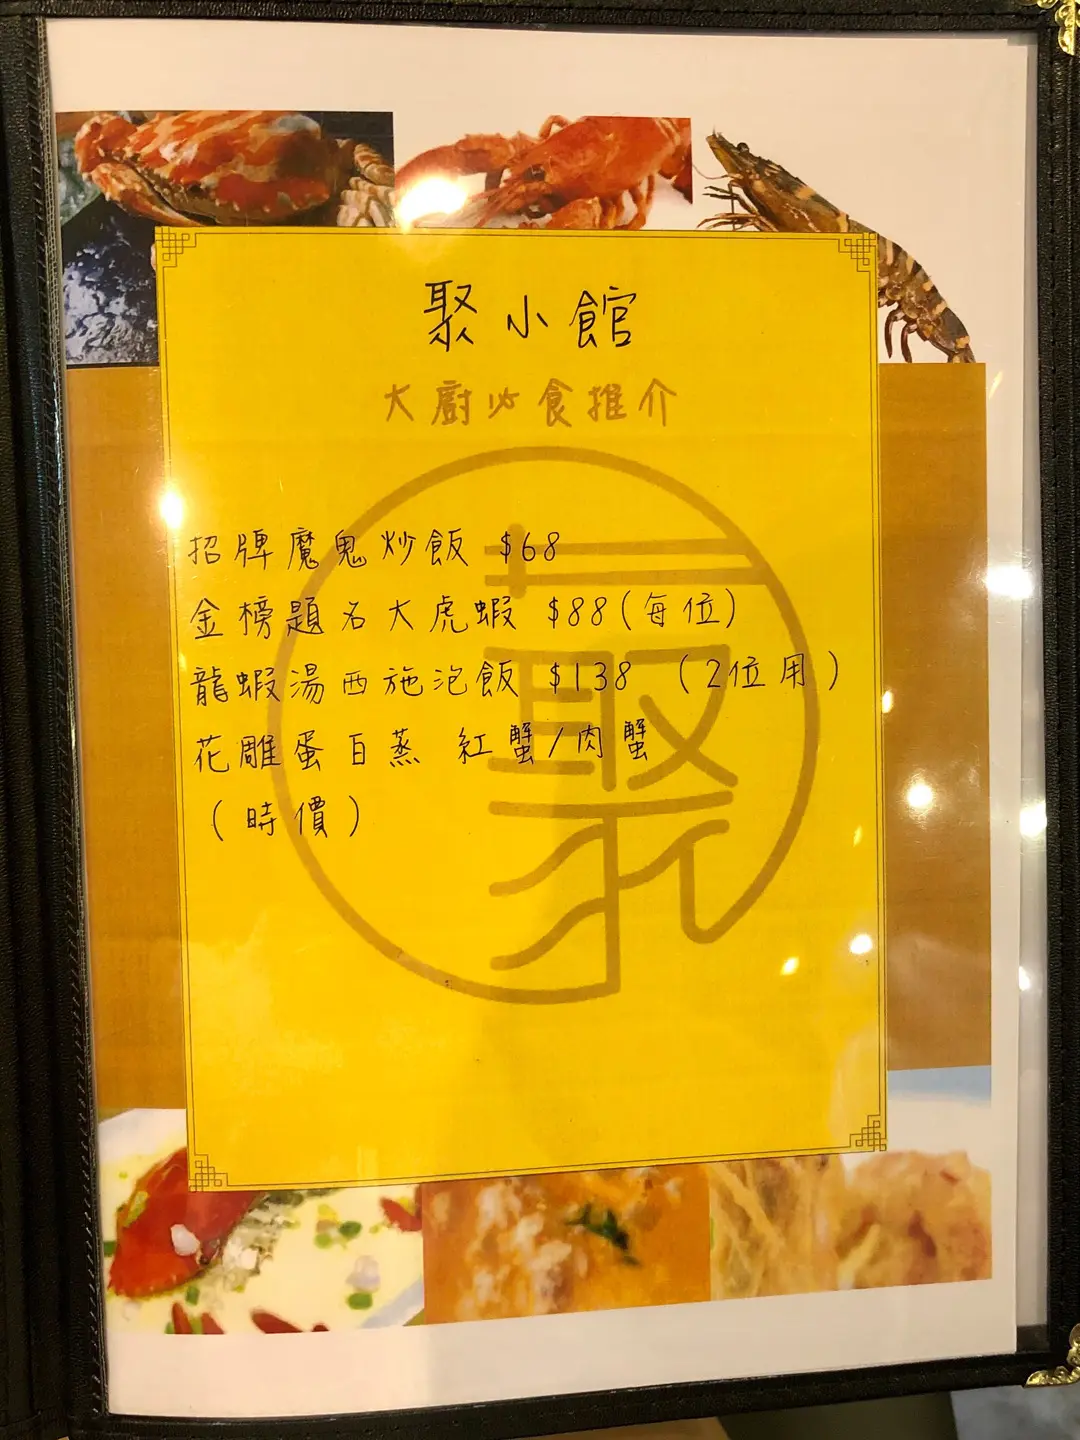 聚小館
大廚必食推介
招牌魔鬼炒飯 $68
金榜題名大虎蝦 $88(每位)
龍蝦湯西施泡飯 $138 (2位用)
花雕蛋白蒸 紅蟹/肉蟹
(時價)
聚